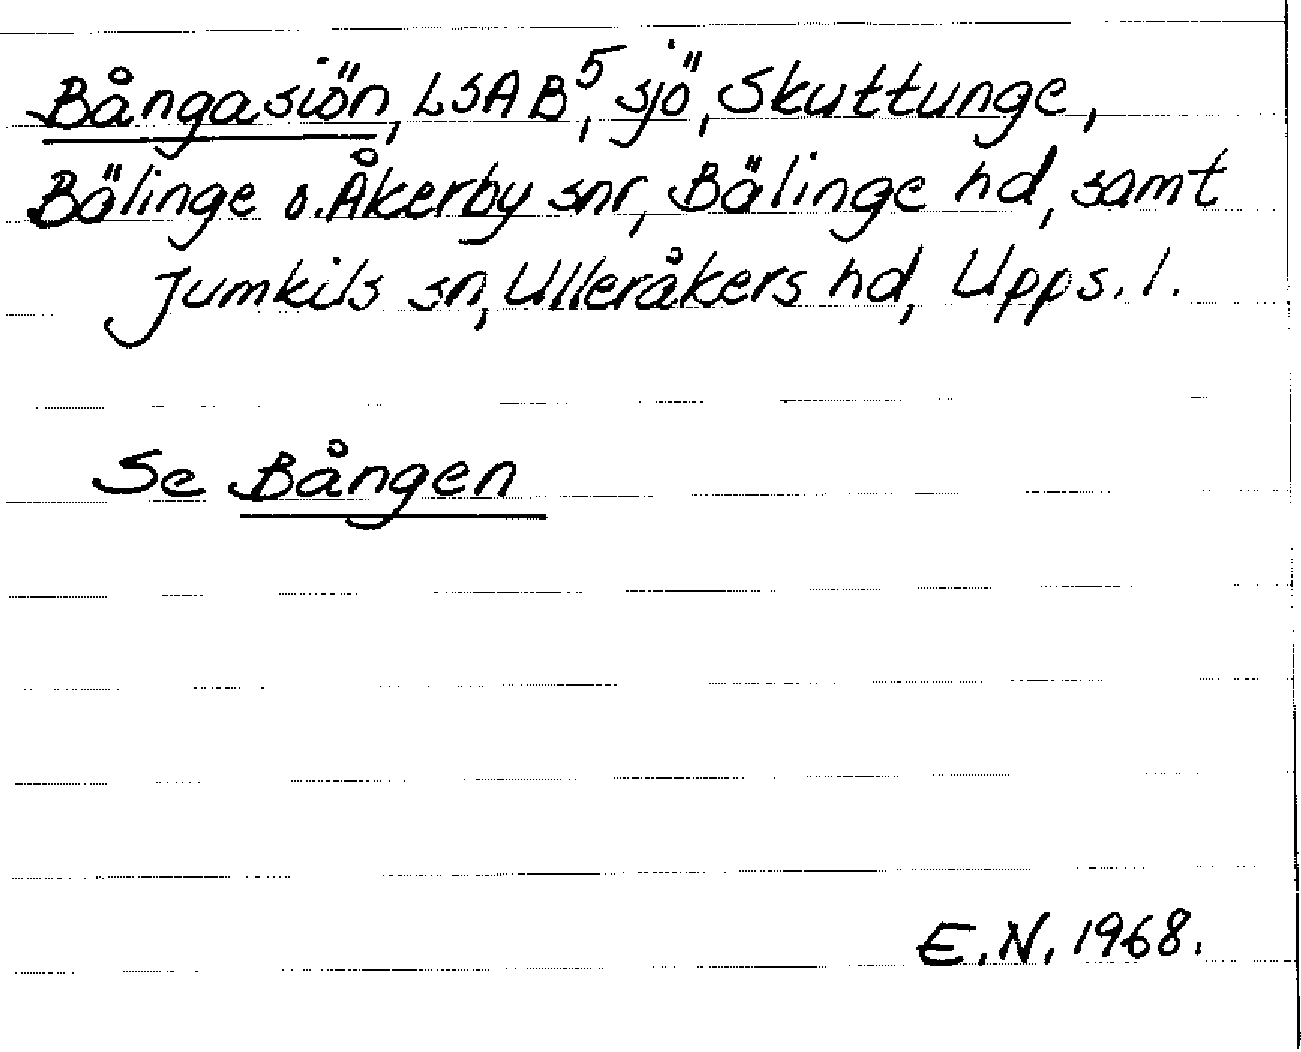 Bångasiön, LSA B⁵, sjö, Skuttunge,
Bälinge o. Åkerby snr, Bälinge hd, samt
Jumkils sn, Ulleråkers hd, Upps. l.
Se Bången
E.N. 1968.